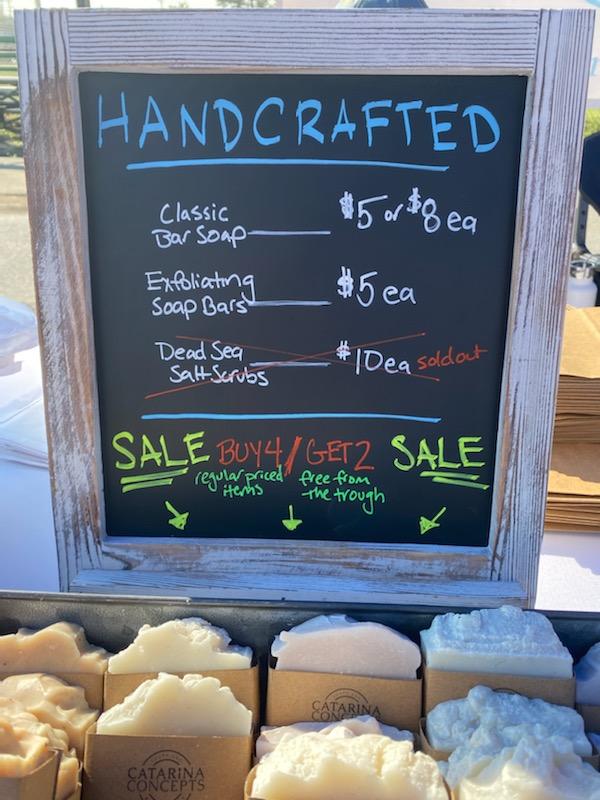 HANDCRAFTED
Classic
Bar Soap $5 or $8 ea
Exfoliating
Soap Bars $5 ea
Dead Sea
Salt Scrubs $10ea sold out
SALE BUY 4/GET 2 SALE
regular priced free from
items the trough
CATARINA
CATARINA
CONCEPTS